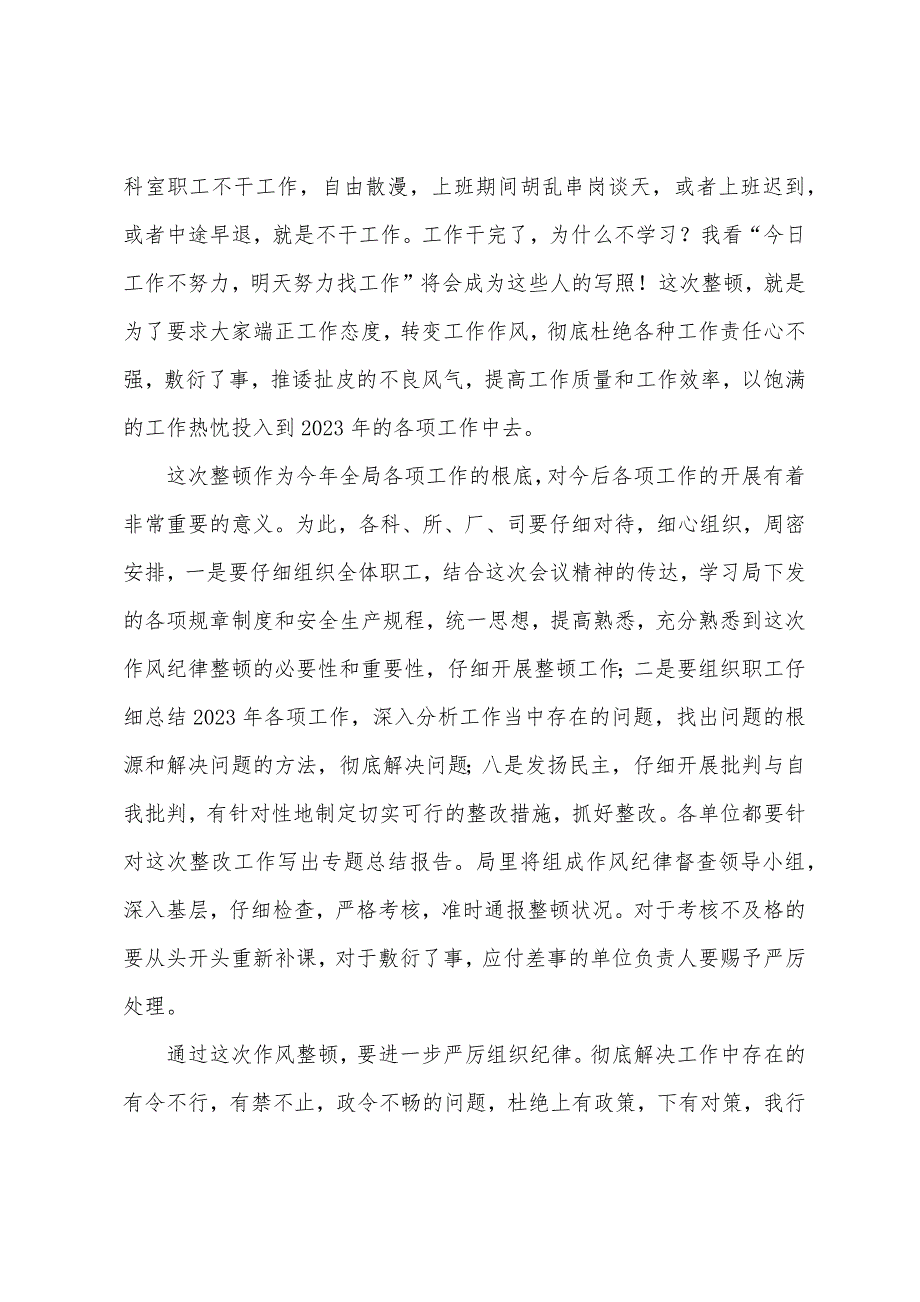 科室职工不干工作，自由散漫，上班期间胡乱串岗谈天，或者上班迟到，
或者中途早退，就是不干工作。工作干完了，为什么不学习？我看“今日
工作不努力，明天努力找工作”将会成为这些人的写照！这次整顿，就是
为了要求大家端正工作态度，转变工作作风，彻底杜绝各种工作责任心不
强，敷衍了事，推诿扯皮的不良风气，提高工作质量和工作效率，以饱满
的工作热忱投入到 2023 年的各项工作中去。
这次整顿作为今年全局各项工作的根底，对今后各项工作的开展有着
非常重要的意义。为此，各科、所、厂、司要仔细对待，细心组织，周密
安排，一是要仔细组织全体职工，结合这次会议精神的传达，学习局下发
的各项规章制度和安全生产规程，统一思想，提高熟悉，充分熟悉到这次
作风纪律整顿的必要性和重要性，仔细开展整顿工作；二是要组织职工仔
细总结 2023 年各项工作，深入分析工作当中存在的问题，找出问题的根
源和解决问题的方法，彻底解决问题；八是发扬民主，仔细开展批判与自
我批判，有针对性地制定切实可行的整改措施，抓好整改。各单位都要针
对这次整改工作写出专题总结报告。局里将组成作风纪律督查领导小组，
深入基层，仔细检查，严格考核，准时通报整顿状况。对于考核不及格的
要从头开头重新补课，对于敷衍了事，应付差事的单位负责人要赐予严厉
处理。
通过这次作风整顿，要进一步严厉组织纪律。彻底解决工作中存在的
有令不行，有禁不止，政令不畅的问题，杜绝上有政策，下有对策，我行